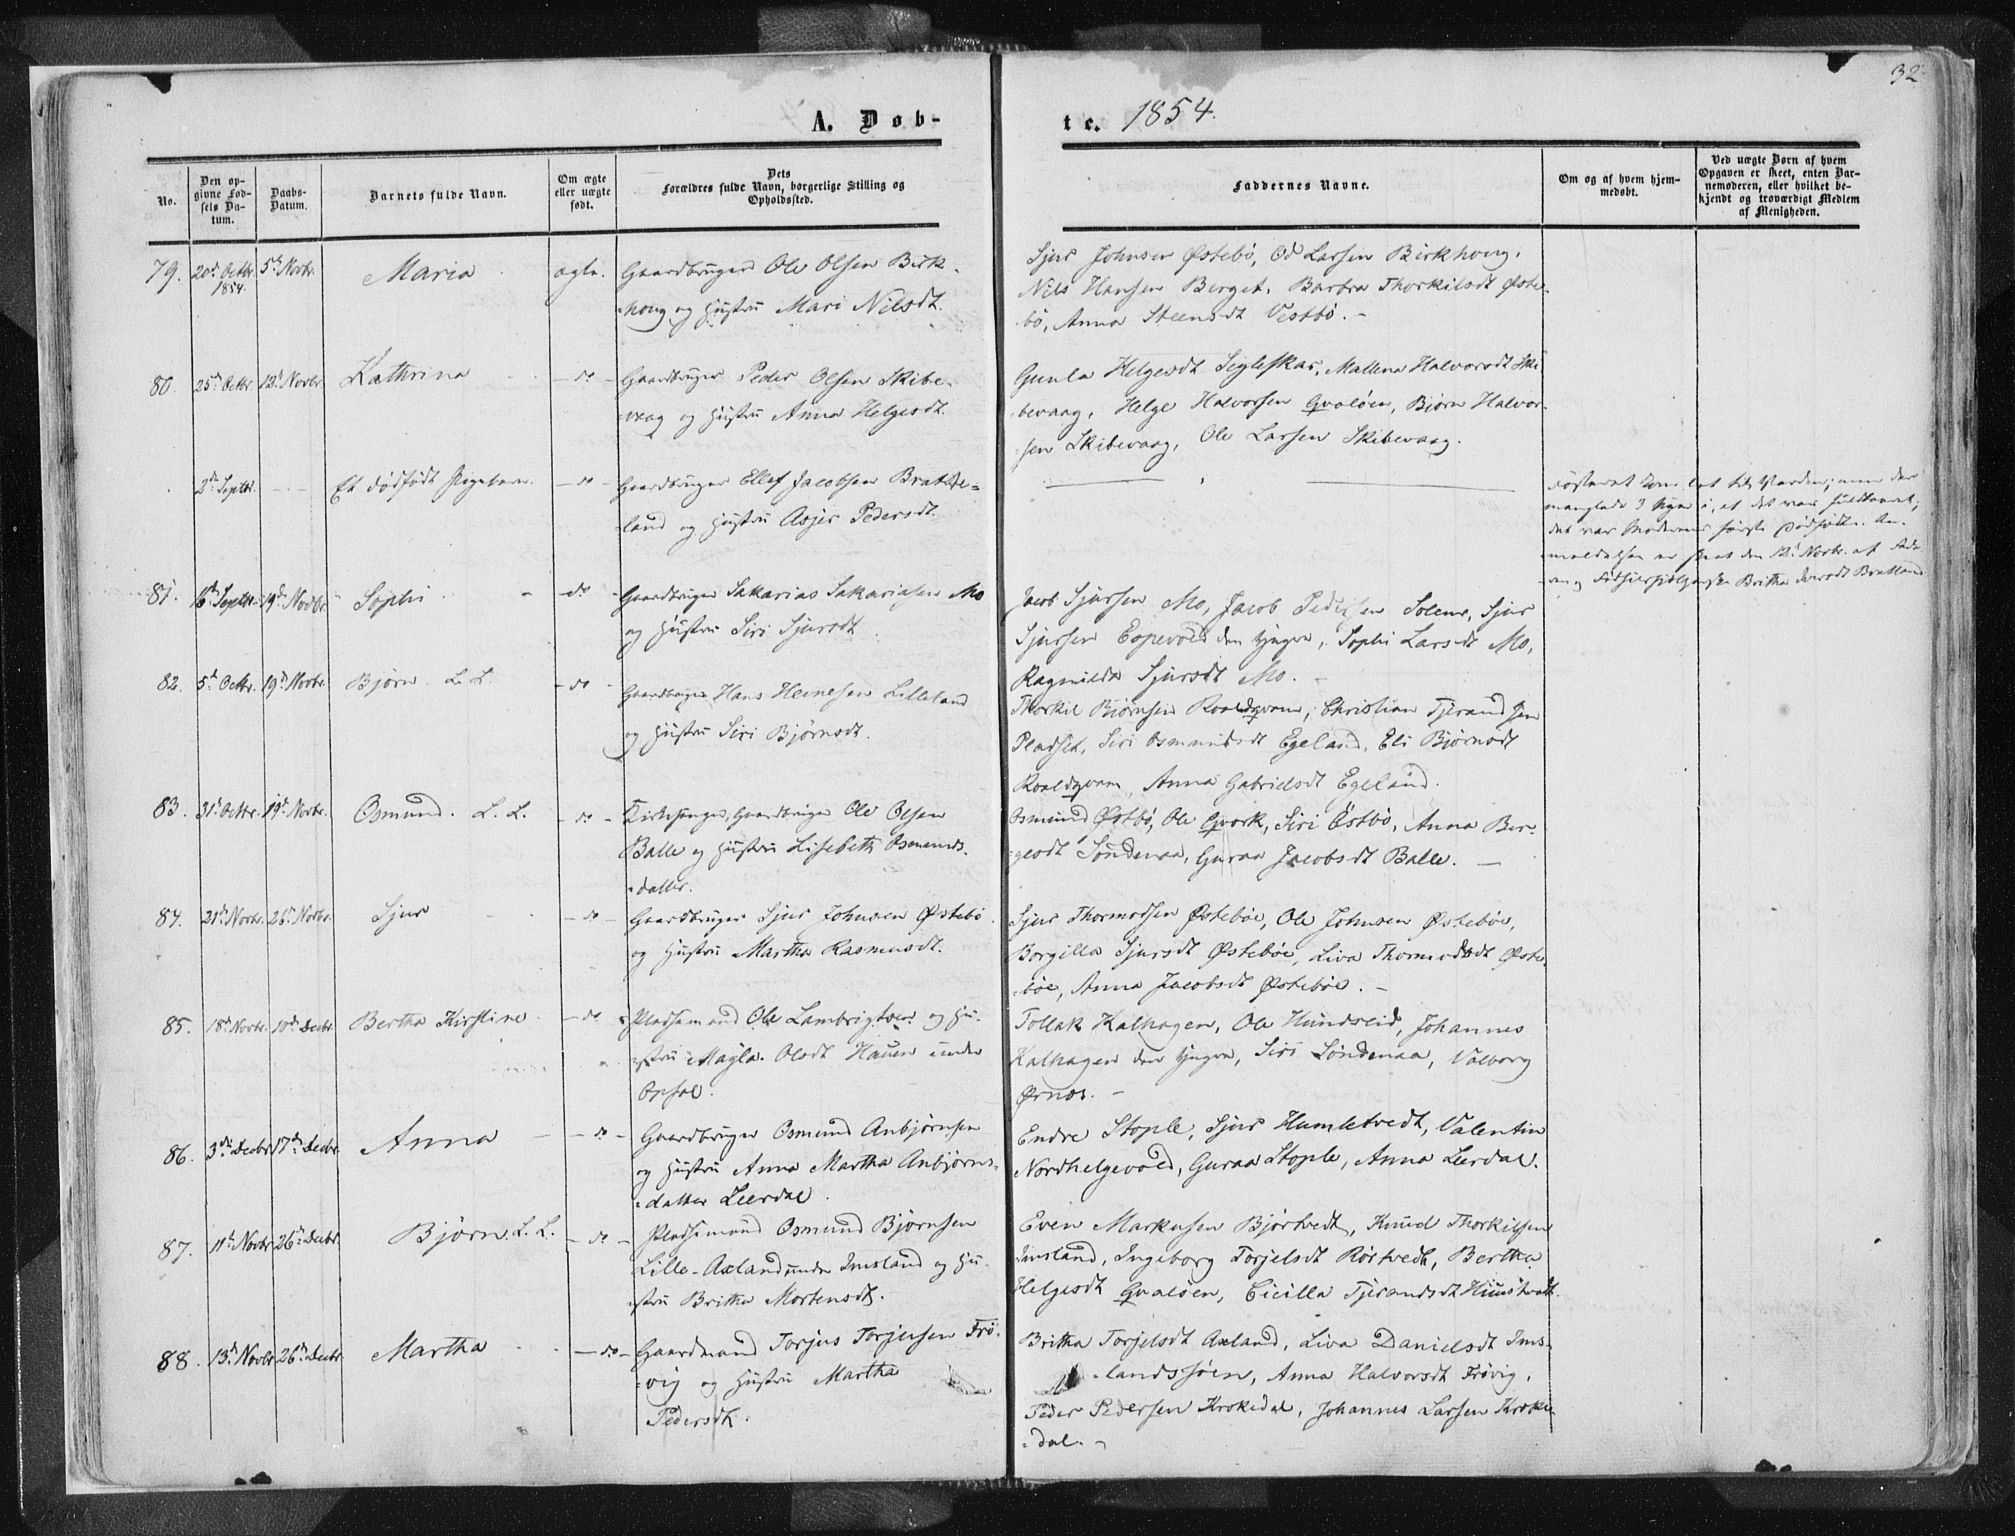 32
A. Døb-
te. 1854.
No.
Den op-
givne Fød-
sels Da-
tum.
Daabs-
Datum.
Barnets fulde Navn.
Om ægte
eller uægte
født.
Dets
Forældres fulde Navn, borgerlige Stilling og
Opholdssted.
Faddernes Navne.
Om og af hvem hjem-
medøbt.
Ved uægte Børn af hvem
Opgaven er skeet, enten Bar-
nemoderen, eller hvilket be-
kjendt og troværdigt Medlem
af Menigheden.
79. 20de Octbr. 1854. 5te Novbr. Maria ægte. Gaardbruger Ole Olsen Birk-
houg og Hustru Mari Nilsdt.
Sjur Johnsen Østebö, Od Larsen Birkhoug,
Nils Hansen Berget, Barbra Thorkilsdt Øste-
bö, Anna Steensdt Vestbö. -
80. 25de Octbr. 12te Novbr. Kathrina do Gaardbruger Peder Olsen Skibe-
vaag og Hustru Anna Helgesdt.
Gunla Helgesdt Segleskar, Mallena Halvorsdt Ski
bevaag, Helge Halvorsen Qvalöen, Biörn Halvor-
sen Skibevaag, Ole Larsen Skibevaag.
2den Septbr. Et dödfödt Pigebarn. do Gaardbruger Ellef Jacobsen Bratte-
land og Hustru Asjer Pedersdt.
manglede 3 Uger i, at det var fuldbaaret;
det var Moderens förste Dödfödte. An-
meldelsen er skeet den 12te Novbr. af
81. 16de Septbr. 19de Novbr. Sophi do Gaardbruger Sakarias Sakariasen Mo
og Hustru Siri Sjursdt
Jacob Sjursen Mo, Jacob Pedersen Solem, Sjur
Sjursen Eopevold den yngre, Sophi Larsdt Mo,
Ragnilda Sjursdt Mo. -
82. 5te Octbr. 19de Novbr. Björn L. L. do Gaardbruger Hans Heinesen Lilleland
og Hustru Siri Björnsdt.
Thorkil Biörnsen Roaldqvam, Christian Tjerandsen
Pladset, Siri Osmundsdt Egeland, Eli Björnsdt
Roaldqvam, Anna Gabrielsdt Egeland.
83. 31te Octbr. 19de Novbr. Osmund. L. L. do Kirkesanger, Gaardbruger Ole Olsen
Balle og Hustru Lisebeth Osmunds-
datter.
Osmund Østbö, Ole Qvark, Siri Östbö, Anna Ber-
gesdt Söndenaa, Guraa Jacobsdt Balle. -
84. 21de Novbr. 26de Novbr. Sjur do Gaardbruger Sjur Johnsen Østebö
og Hustru Martha Rasmusdt.
Sjur Thormodsen Østeböe, Ole Johnsen Østeböe,
Borgilla Sjursdt Østeböe, Liva Thormodsdt Øste-
böe, Anna Jacobsdt Østeböe. -
85. 18de Novbr. 10de Decbr. Bertha Kirstine do Pladsemand Ole Lambrigtsen og Hu-
stru Magla Olsdt Hauen under
Opsal.
Tollak Kalhagen, Ole Hundseid, Johannes
Kalhagen den yngre, Siri Söndenaa, Valborg
Ørnes. -
86. 3die Decbr. 17de Decbr. Anna do Gaardbruger Osmund Anbjörnsen
og Hustru Anna Martha Anbjörns-
datter Leerdal.
Endre Stople, Sjur Humletvedt, Valentin
Nordhelgevold, Guraa Stople, Anna Leerdal.
87. 11te Novbr. 26de Decbr. Björn L. L. do Pladsemand Osmund Björnsen
Lille-Axland under Imsland og Hu-
stru Britha Mortensdt.
Even Markusen Bjørtvedt, Knud Thorkilsen
Imsland, Ingeborg Torjelsdt Röstvedt, Bertha
Helgesdt Qvalöen, Cicilla Tjerandsdt
88. 13de Novbr. 26de Decbr. Martha do Gaardmand Torjus Torjusen Frö-
vig og Hustru Martha
Pedersdt.
Britha Torjelsdt Axland, Liva Danielsdt Ims-
landssöen, Anna Halvorsdt Frövig,
Peder Pedersen Krokedal, Johannes Larsen Kroke-
dal. -